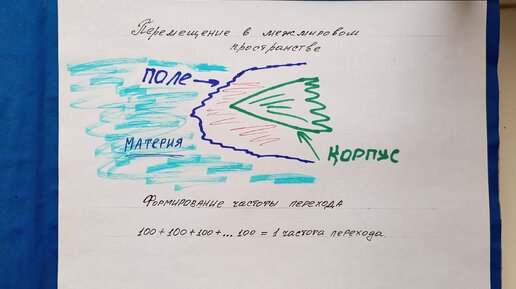 Перемещение в межмировом
пространстве
ПОЛЕ
МАТЕРИЯ
КОРПУС
Формирование частоты перехода
100 + 100 + 100 + ... 100 = 1 частота перехода